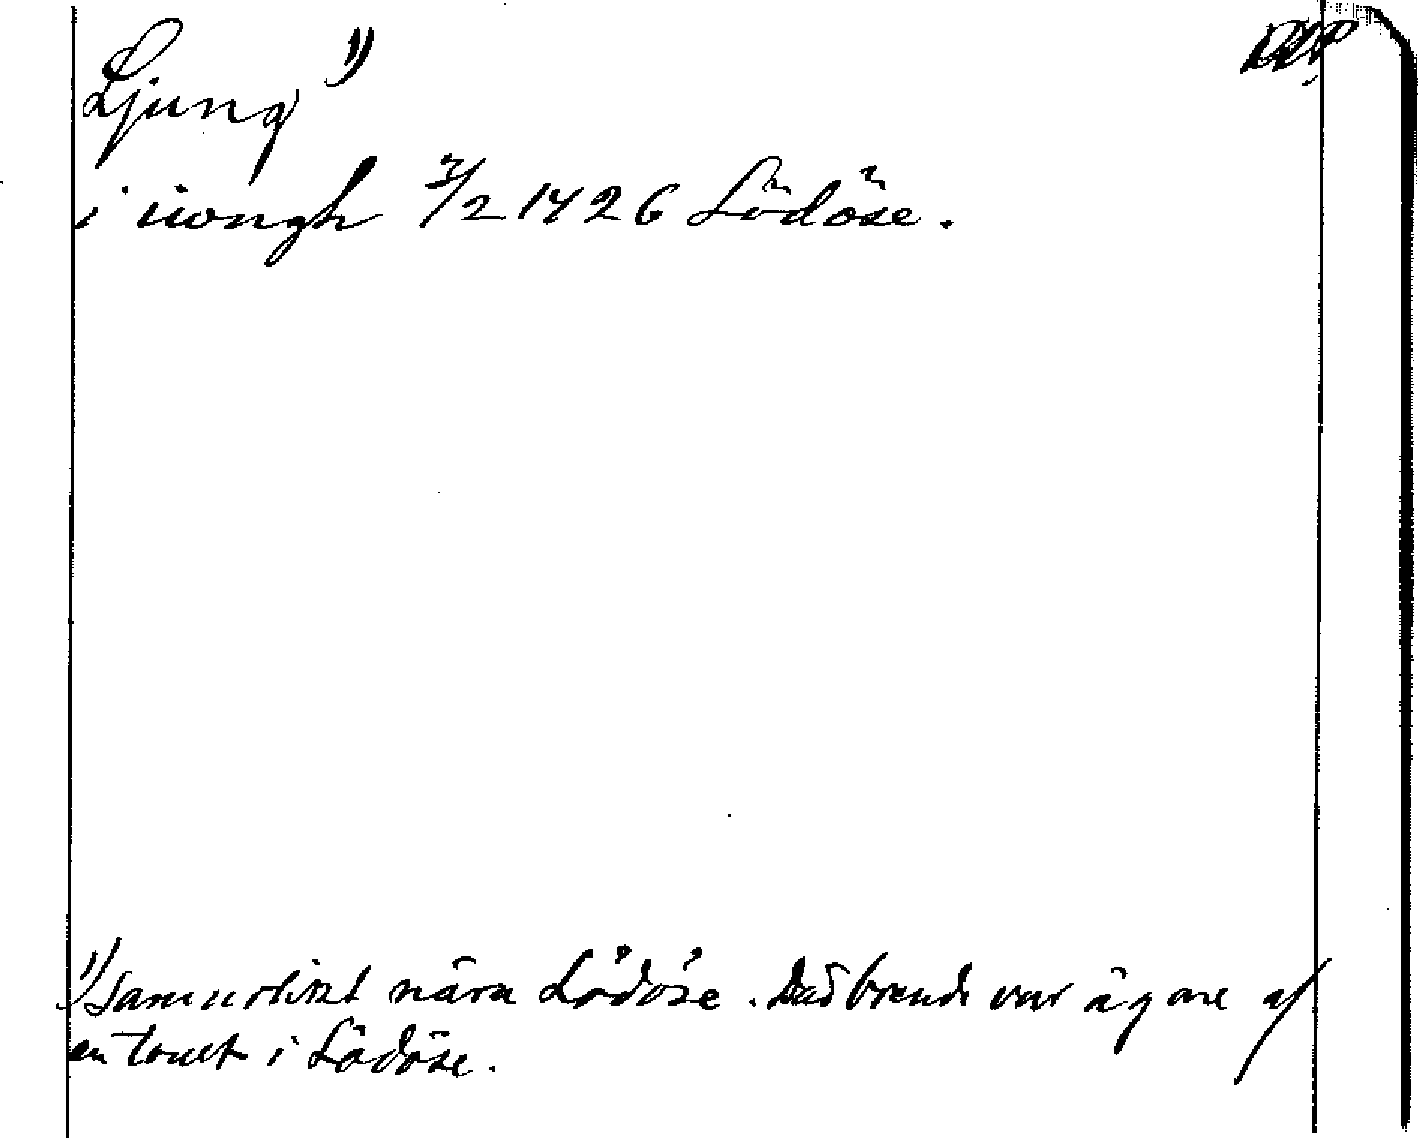 Ljung 1)
i iiongh 3/2 1426 Lödöse.
1) Sannolikt nära Lödöse. Dess brande var ägare af
en tomt i Lödöse.